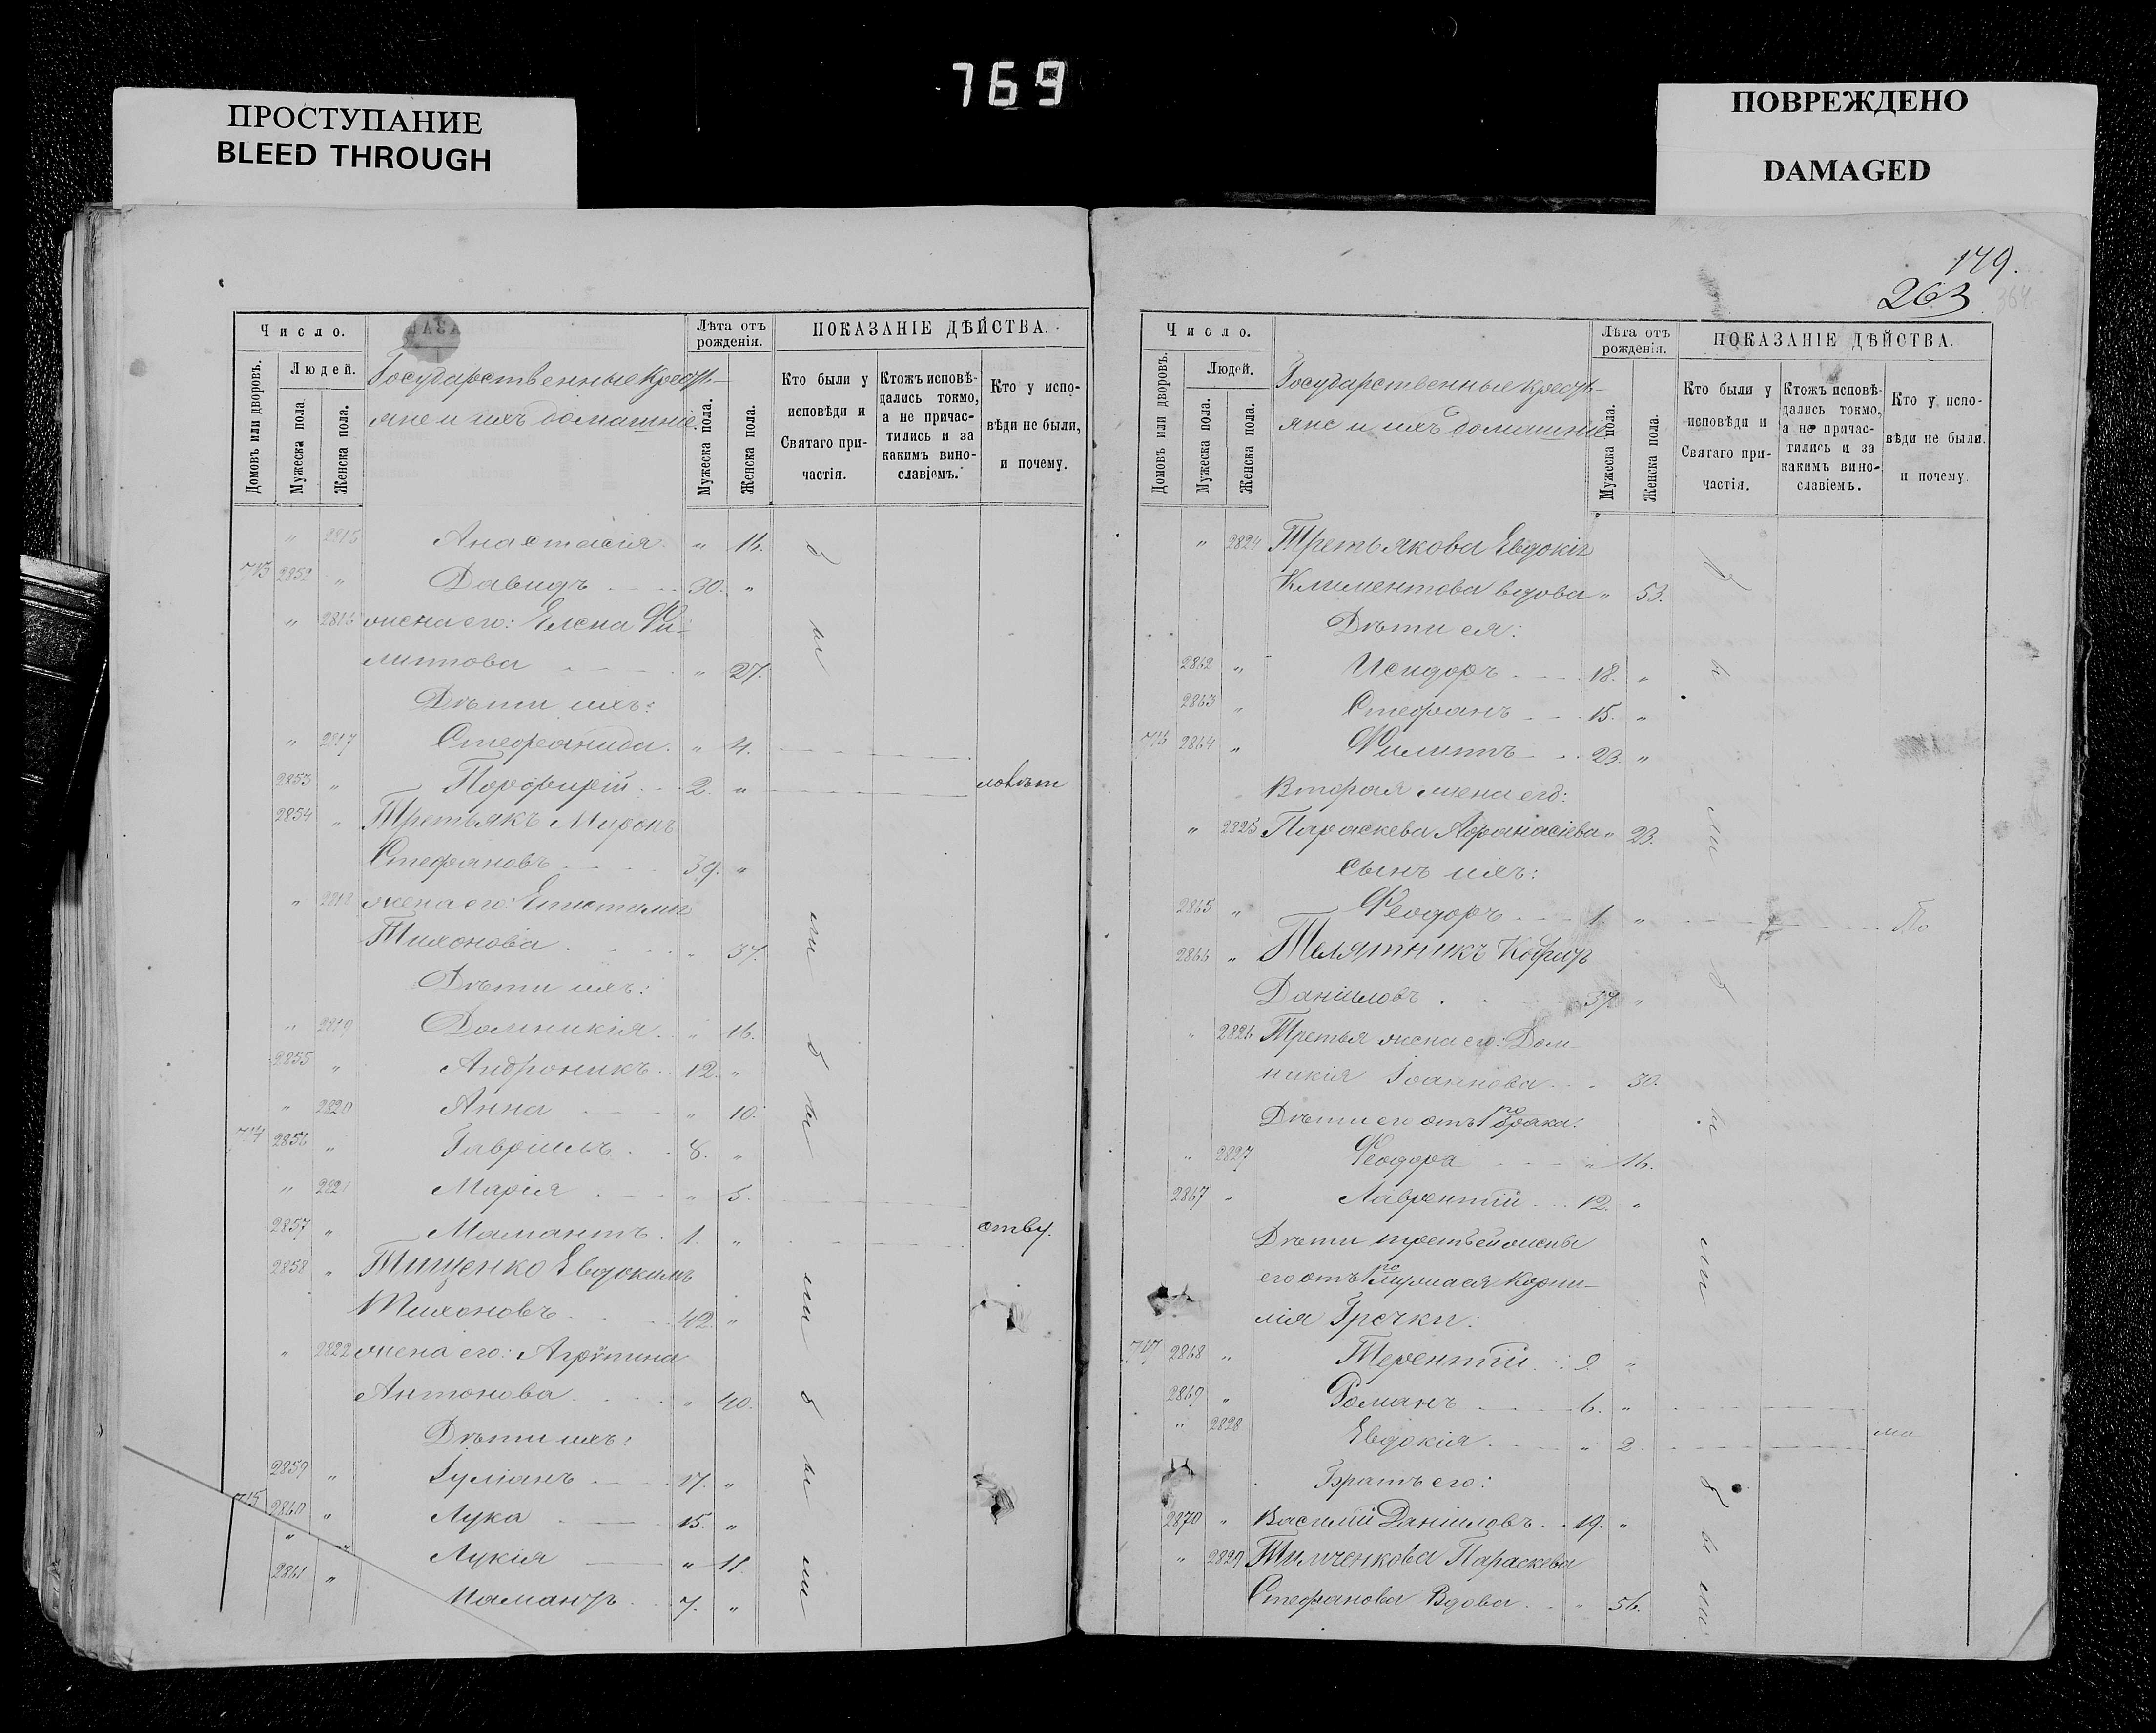 769
ПРОСТУПАНИЕ
BLEED THROUGH
ПОВРЕЖДЕНО
DAMAGED
Число.
Домовъ или дворовъ.
Людей.
Мужеска пола
Женска пола.
Государственные крестья-
яне и ихъ домашніе.
Лѣта отъ рожденія.
Мужеска пола.
Женска пола.
ПОКАЗАНІЕ ДѢЙСТВА.
Кто были у исповѣди и Святаго при-частія.
Ктожъ исповѣ-дались токмо, а не причас-тились и за какимъ вино-славіемъ.
Кто у испо-вѣди не были, и почему.
" 2815 Анастасія " 16.
713 2852 " Давидъ 30. "
" 2816 жена его: Елена Фи-
липпова " 27.
Дѣти ихъ:
" 2817 Стефанида " 4.
2853 " Порфирій 2. "
2854 " Третьякъ Миронъ
Стефановъ 39. "
" 2818 жена его: Епистимія
Тихонова " 37.
Дѣти ихъ:
" 2819 Домникія " 16.
2855 " Андроникъ 12. "
" 2820 Анна " 10.
714 2856 " Гавріилъ 8. "
" 2821 Марія " 5.
2857 " Мамантъ 1. "
2858 " Тищенко Евдокимъ
Тихоновъ 42. "
" 2822 жена его: Агрипина
Антонова " 40.
Дѣти ихъ:
2859 " Іуліанъ 17. "
715 2860 " Лука 15. "
" Лукія " 11.
2861 " Мамантъ 7. "
179.
263
364.
Число.
Домовъ или дворовъ.
Людей.
Мужеска пола.
Женска пола.
Государственные крестья-
яне и ихъ домашніе
Лѣта отъ рожденія.
Мужеска пола.
Женска пола.
ПОКАЗАНІЕ ДѢЙСТВА.
Кто были у исповѣди и Святаго при-частія.
Ктожъ исповѣ-дались токмо, а не причас-тились и за какимъ вино-славіемъ.
Кто у испо-вѣди не были. и почему.
" 2824 Третьякова Евдокія
Климентова вдова " 53.
Дѣти ея:
2862 " Исидоръ 18. "
2863 " Стефанъ 15. "
716 2864 " Филиппъ 23. "
Вторая жена его:
" 2825 Параскева Афанасіева " 23.
Сынъ ихъ:
2865 " Феодоръ 1. "
2866 " Телятникъ
Даніиловъ 39. "
" 2826 Третья жена его: Дом-
никія Іоаннова " 30.
Дѣти его отъ 1го брака:
" 2827 Феодора " 16.
2867 " Лаврентій 12. "
Дѣти третьей жены
его отъ 1го мужа ея Корни-
лія Гречки:
717 2868 " Терентій 9. "
2869 " Романъ 6. "
" 2828 Евдокія " 2.
Братъ его:
2870 " Василій Даніиловъ 19. "
" 2829 Тимченкова Параскева
Стефанова Вдова " 56.